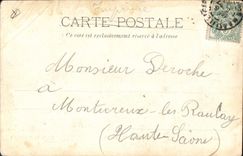 CARTE POSTALE
Ce côté est exclusivement réservé à l'adresse
Monsieur Deroche
à
Montureux-les-Baulay
(Haute-Saône)